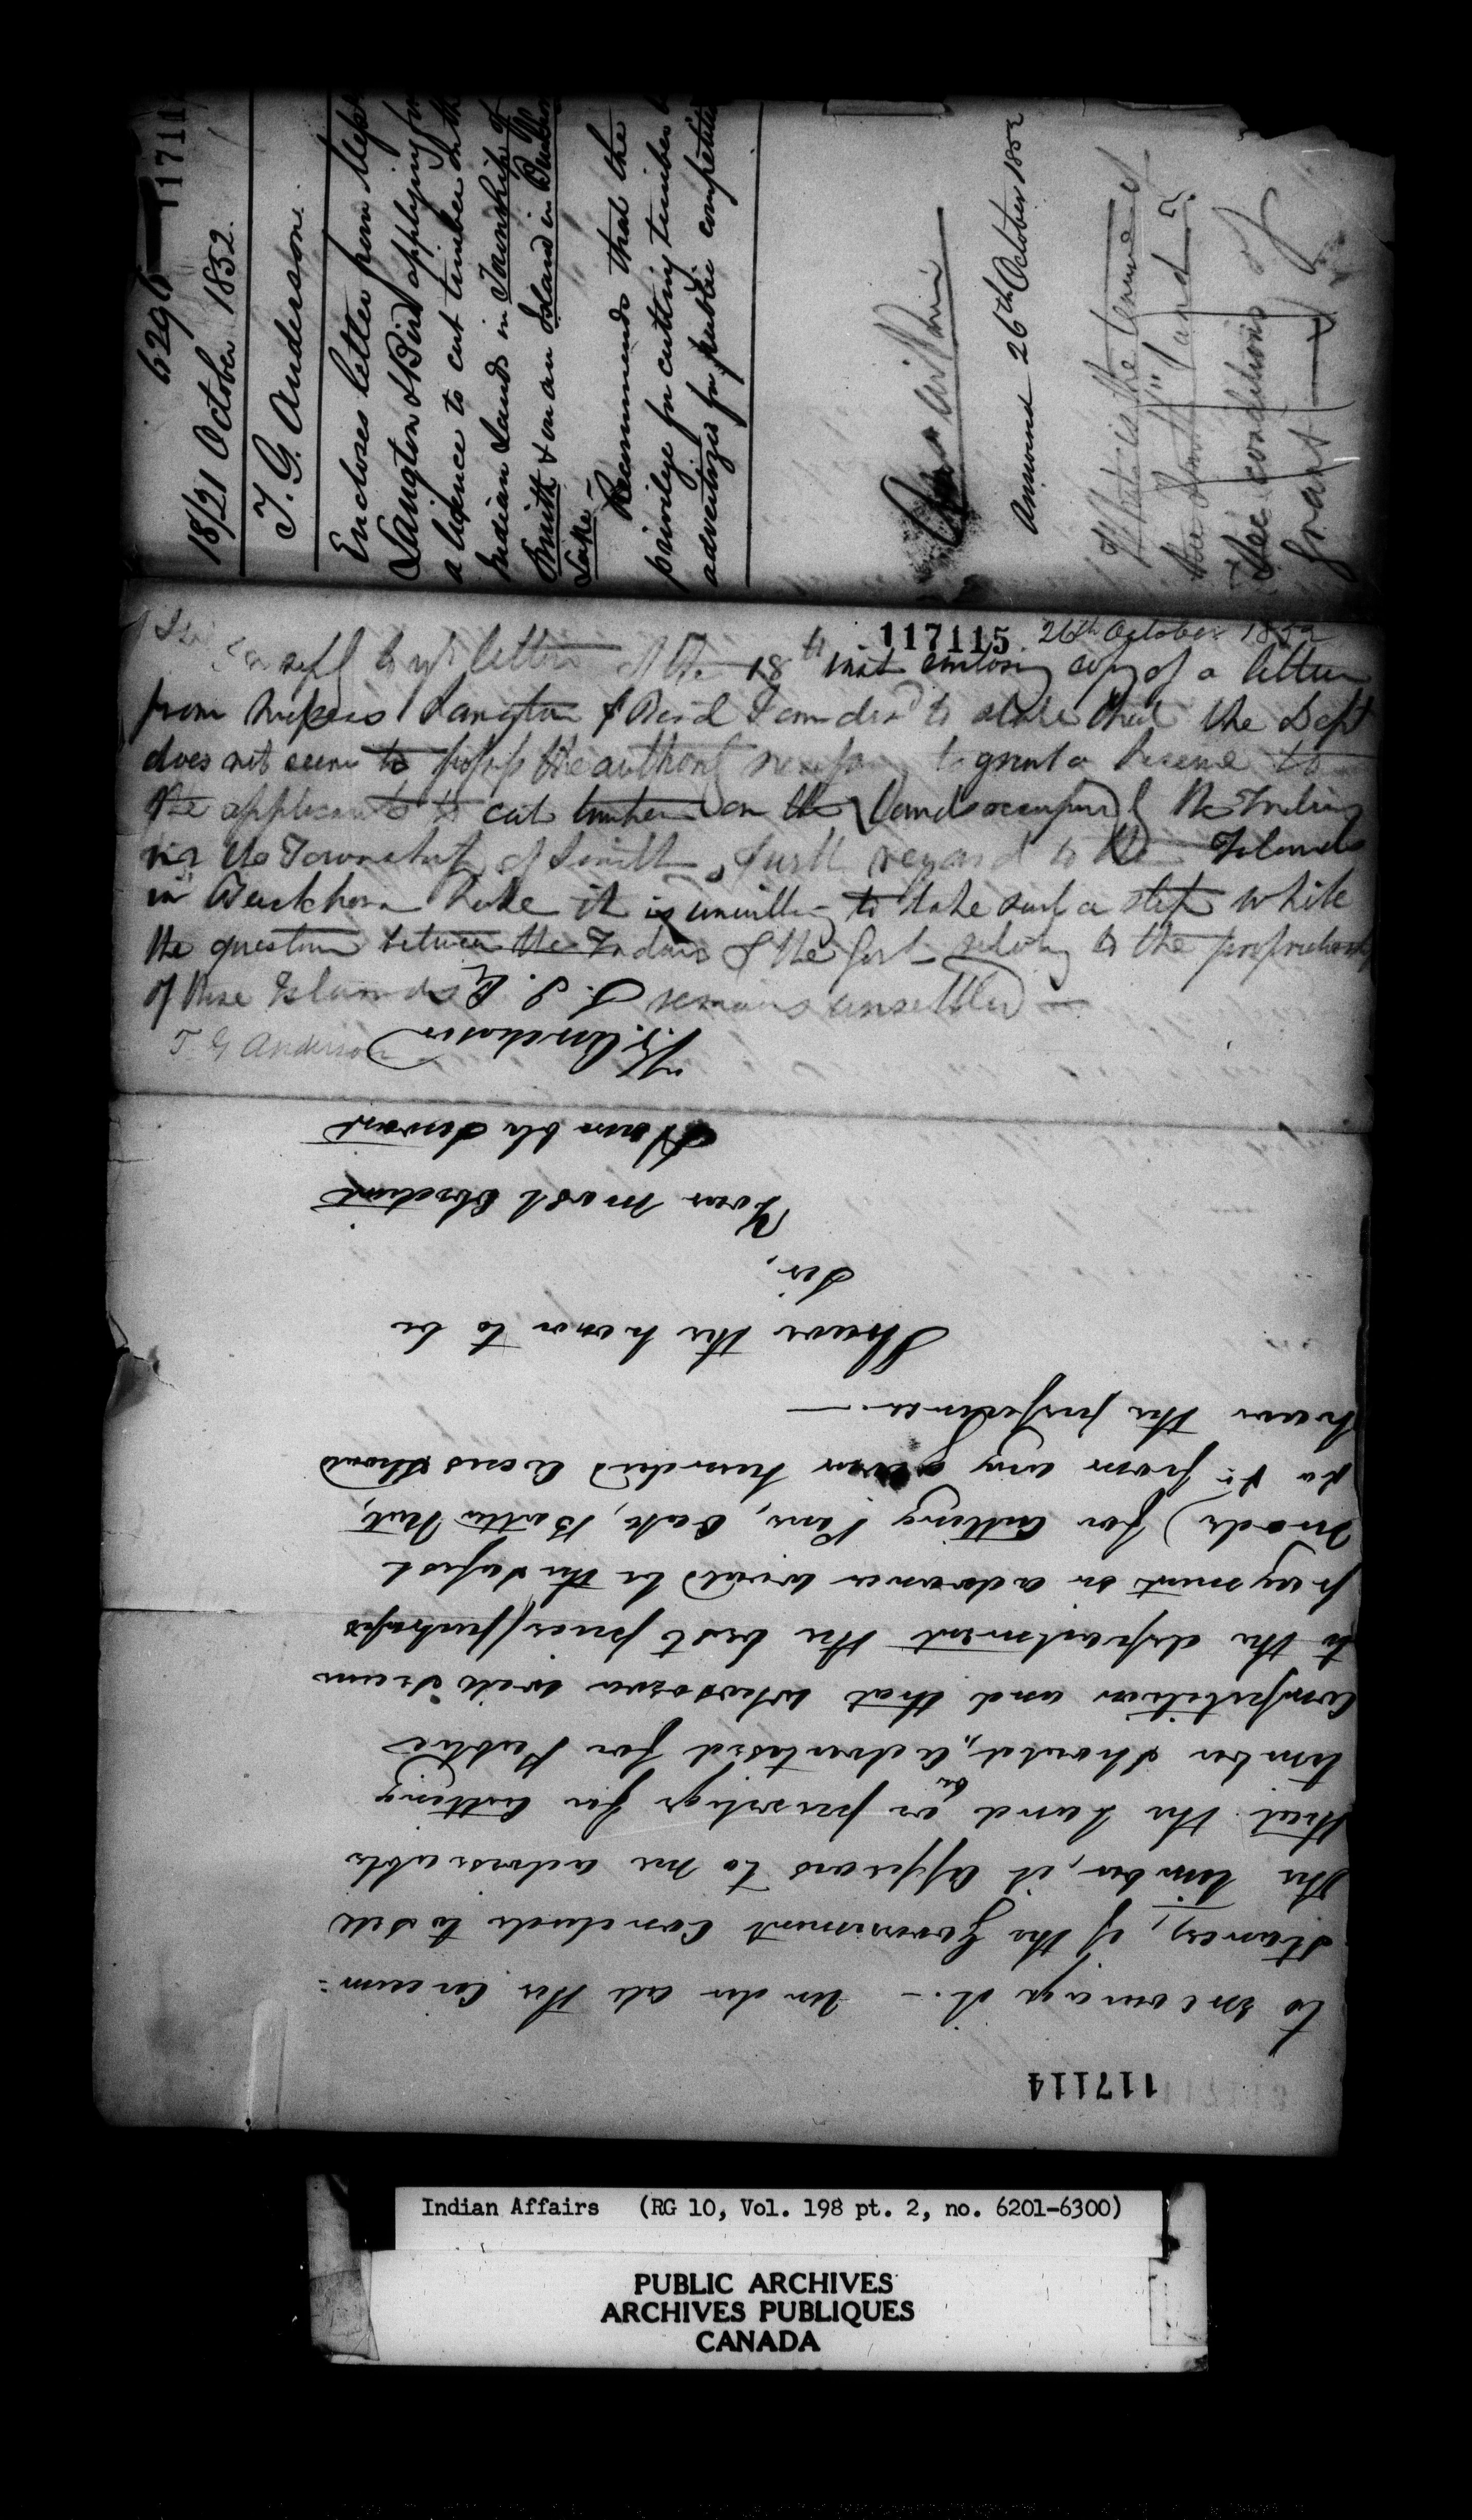 6296
11711
18/21 October 1852.
T. G. Anderson.
Encloses letter from Mess
Langton & Bird applying for
a licence to cut timber on the
Indian Lands in Township of
Smith & on an Island in Buckhorn
Lake –
Recommends that the
privilege for cutting timber
advertized for public competition
Answered 26th October 1852
What is the tenure of
the Smith Land &
the conditions of
grant
117115
26th October 1852
In reply to yr letter of the 18th inst enclosing copy of a letter
from Messrs Langton & Bird I am dird to state that the Dept
does not seem to possess the authority necessary to grant a license to
the applicants to cut timber on the Lands occupied by the Indians
in the Township of Smith, with regard to the Islands
in Buckhorn Lake it is unwilling to take such a step while
the question between the Indians & the Govt relating to the proprietorship
of these Islands remains unsettled –
T G Anderson
117114
to encourage it. – Under all the circum=
stances, if the Government conclude to sell
the timber, it appears to me advisable
that the land or privilege for cutting
timber should be advertised for Public
competition and that whosoever will secure
to the department the best price (perhaps
payment in advance would be the safest
mode) for cutting Pine, Oak, Butter Nut,
&a &c from any given hundred acres should
have the preference. –
I have the honor to be
Sir,
Your most obedient
Humble Servant
T G Anderson
S. I. A
Indian Affairs (RG 10, Vol. 198 pt. 2, no. 6201-6300)
PUBLIC ARCHIVES
ARCHIVES PUBLIQUES
CANADA